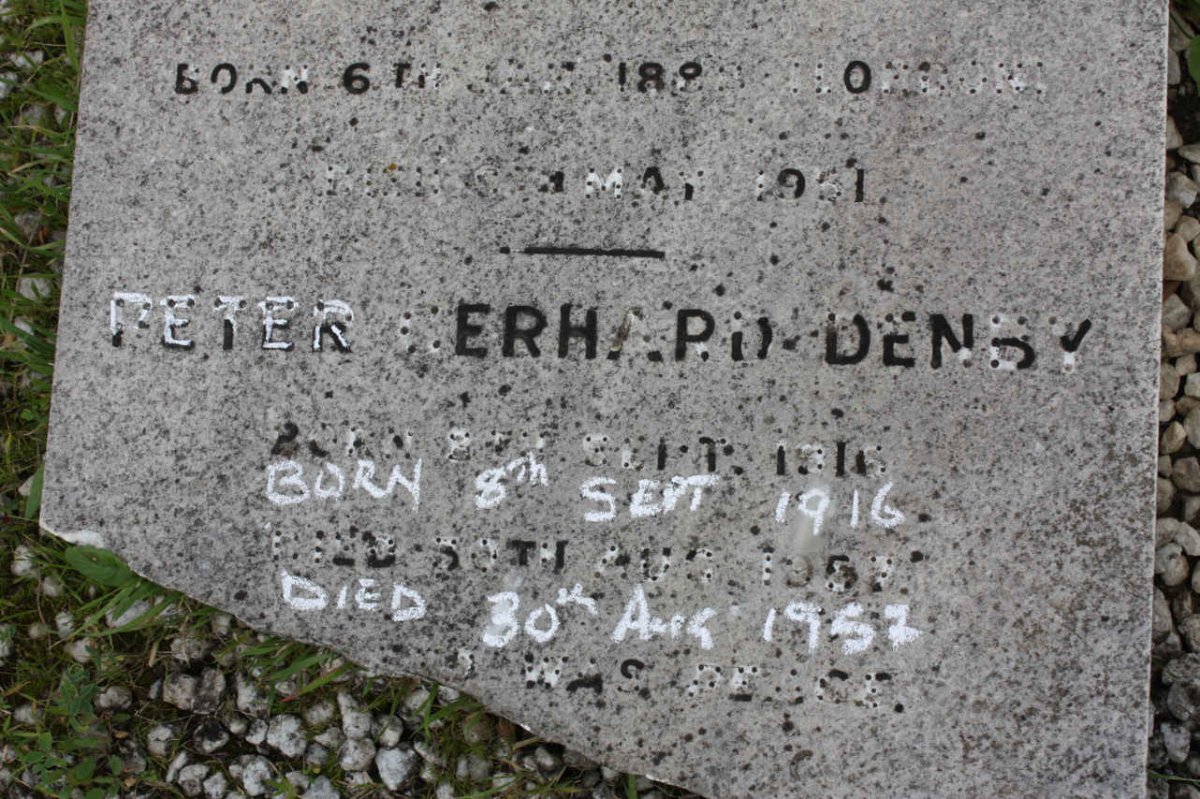 BORN 6TH
MAY 1951
PETER GERHARD DENBY
BORN 8TH SEPT. 1916
BORN 8th SEPT 1916
DIED 30TH AUG 1957
DIED 30th Aug 1957
WAS